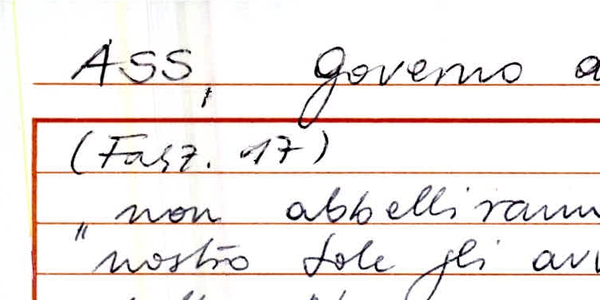 ASS, Governo a
(Fasz. 17)
" non abbelliran
nostro sole gli avv